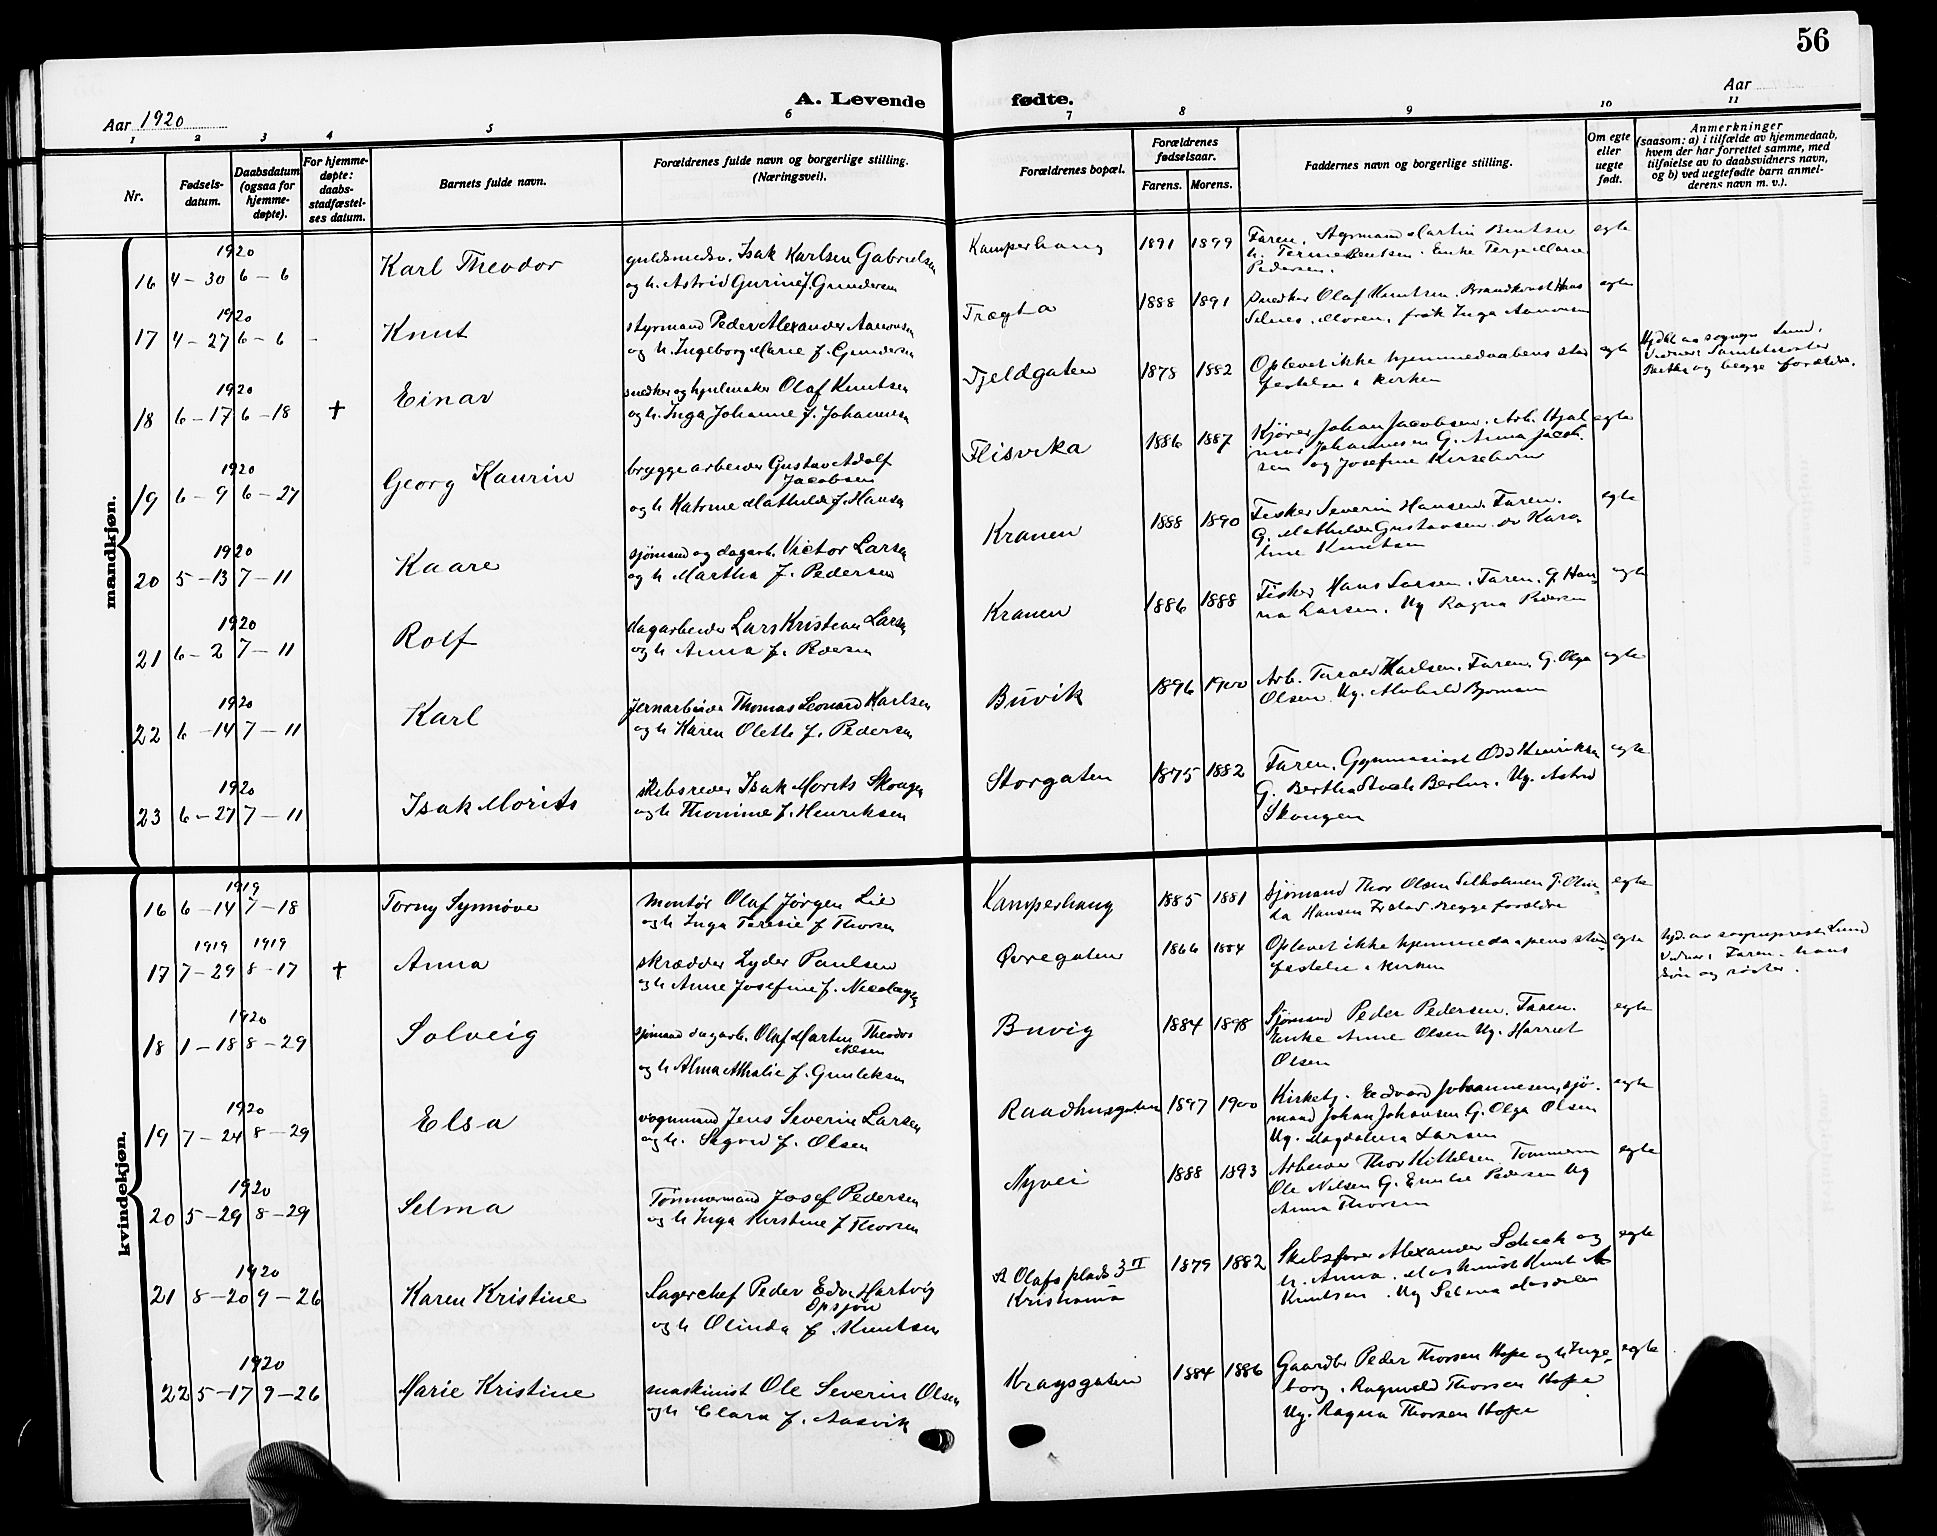 56
Aar 1920
A. Levende
fødte.
Aar
1 2 3 4 5 6 7 8 9 10 11
Nr.
Fødsels-
datum.
Daabsdatum
(ogsaa for
hjemme-
døpte).
For hjemme-
døpte:
daabs-
stadfæstel-
ses datum.
Barnets fulde navn.
Forældrenes fulde navn og borgerlige stilling.
(Næringsvei).
Forældrenes bopæl.
Forældrenes
fødselsaar.
Farens. Morens.
Faddernes navn og borgerlige stilling.
Om egte
eller
uegte
født.
Anmerkninger
(saasom: a) i tilfælde av hjemmedaab,
hvem der har forrettet samme, med
tilføielse av to daabsvidners navn,
og b) ved uegtefødte barn anmel-
derens navn m. v.).
mandkjøn.
1920
16 4-30 6-6
Karl Theodor
guldsmedsv. Isak Karlsen Gabrielsen
og h. Astrid Gurine f. Gundersen
Kamperhaug
1891 1899
Faren. Martin Bentsen
h. Bentsen. Enke Marie
Pedersen.
egte
1920
17 4-27 6-6 -
Knut
styrmand Peder Alexander Aanonsen
og h. Ingeborg Marie f. Gundersen
Tragta
1888 1891
Snedker Olaf Knutsen. Hans
Selnes. Moren, frøk Inga Aanonsen
egte
1920
18 6-17 6-18 +
Einar
snedker og hjulmaker Olaf Knutsen
og h. Inga Johanne f. Johannesen
Fjeldgaten
1878 1882
Oplevet ikke hjemmedaabens stad
festelse i kirken
egte
Hjdbt av sognepr Lund.
og begge forældre.
1920
19 6-9 6-27
Georg Kaurin
bryggearbeider Gustav Adolf
Jacobsen
og h Katrine Mathilde f. Hansen
Flisvika
1886 1887
Kjører Johan Jacobsen. Arb. Hjal
mar Johannesen G. Anna Jacob.
sen og Josefine Kirseborn
egte
1920
20 5-13 7-11
Kaare
sjømand og dagarb. Victor Larsen
og h Martha f. Pedersen
Kranen
1888 1890
Fisker Severin Hansen. Faren.
G. Mathilde Gustavsen. Karo
line Knutsen
egte
1920
21 6-2 7-11
Rolf
dagarbeider Lars Kristian Larsen
og h Anna f. Pedersen
Kranen
1886 1888
Fisker Hans Larsen. Faren. G. Han-
na Larsen. Ug Ragna Pedersen
egte
1920
22 6-14 7-11
Karl
Jernarbeider Thomas Leonard Karlsen
og h Karen Olette f. Pedersen
Buvik
1896 1900
Arb. Karlsen. Faren. G. Olga
Olsen. Ug.
egte
1920
23 6-27 7-11
Isak Morits
skibsreder Isak Morits Skougen
og h Thomine f. Henriksen
Storgaten
1875 1882
Faren. Gymnasiast Odd Henriksen
G. Bertha Ug. Astrid
Skougen
egte
kvindekjøn.
1919
16 6-14 7-18
Torny Synnøve
montør Olaf Jørgen Lie
og h Inga Teresie f Thorsen
Kamperhaug
1885 1881
Sjømand Thor Olsen G. Olin-
da Hansen begge forældre
egte
1919 1919
17 7-29 8-17 +
Anna
skrædder Lyder Paulsen
og h Anne Josefine f. Nicolaysen
Øvregaten
1866 1884
Oplevet ikke hjemmedaapens stad
festelse i kirken
egte
hjd. av sogneprest Lund
Vidner: Faren. hans
søn og søster.
1920
18 1-18 8-29
Solveig
sjømand dagarb. Olaf Martin Theodor
Nilsen
og h Alma Athalie f. Gunleksen
Buvig
1884 1898
Sjømand Peder Pedersen. Faren.
Enke Anne Olsen Ug. Harriet
Olsen
egte
1920
19 7-24 8-29
Elsa
vognmand Jens Severin Larsen
og h. Sigrid f. Olsen
Raadhusgaten
1897 1900
Kirketj. Edvard Johannesen, sjø-
mand Johan Johansen G. Olga Olsen
Ug. Magdalena Larsen
egte
1920
20 5-29 8-29
Selma
Tømmermand Josef Pedersen
og h Inga Kirstine f Thorsen
Nyvei
1888 1893
Arbeider Thor Kittelsen. Tømmerm
Ole Nilsen G. Emilie Pedersen Ug
Anna Thorsen
egte
1920
21 8-20 9-26
Karen Kristine
Lagerchef Peder Edv. Hartvig
Opsjøn
og h Olinda f. Knutsen
St Olafs plads 3 II
Kristiania
1879 1882
Skibsfører Alexander og
h. Anna. Maskinist Knut
Knutsen. Ug Selma
egte
1920
22 5-17 9-26
Marie Kristine
maskinist Ole Severin Olsen
og h Clara f. Aasvik
Kragsgaten
1884 1886
Gaardbr Peder Thorsen Hope og h Inge-
borg. Ragnvald Thorsen Hope
Ug. Ragna Thorsen Hope
egte